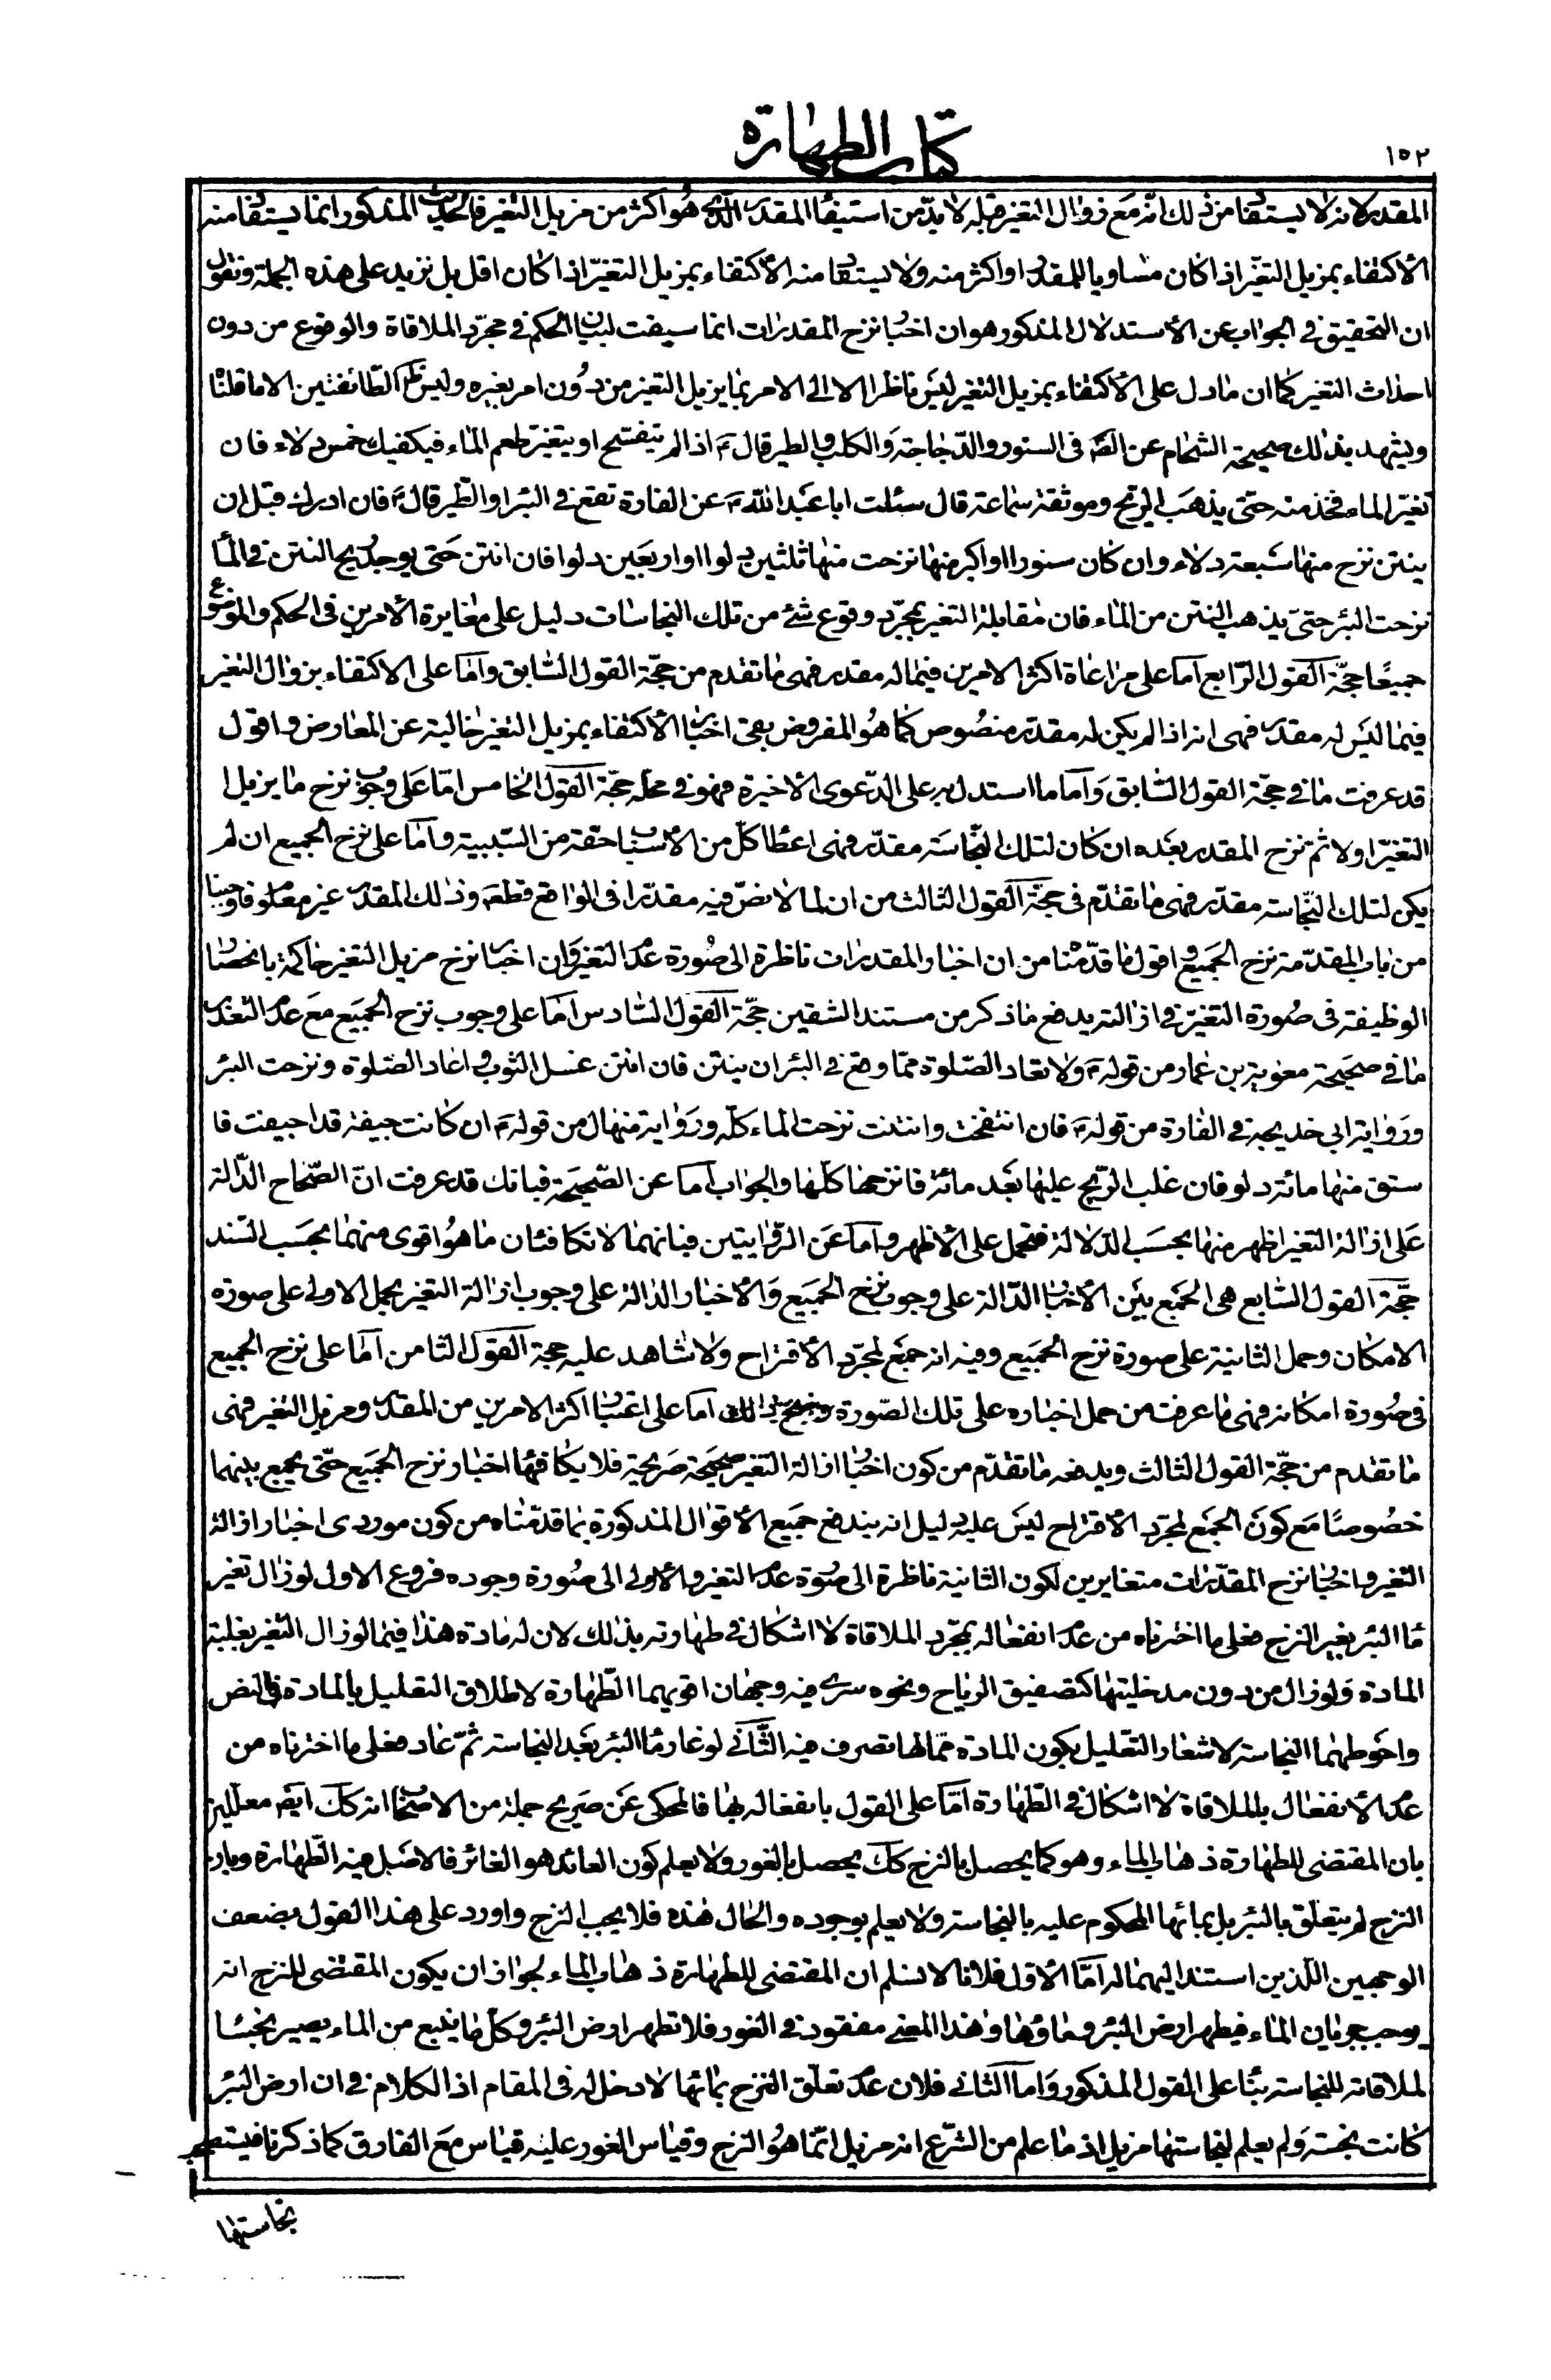 ١٥٢
كتاب الطهارة
المقدر لانه لا يستفاد من ذلك انه مع زوال التغير قبله لا بد من استيفاء المقدر الذي هو اكثر من مزيل التغير فالحديث المذكور انما يستفاد منه
الاكتفاء بمزيل التغير اذا كان مساويا للمقدر او اكثر منه ولا يستفاد منه الاكتفاء بمزيل التغير اذا كان اقل بل نزيد على هذه الجملة ونقول
ان التحقيق في الجواب عن الاستدلال المذكور هو ان اخبار نزح المقدرات انما سيقت لبيان الحكم في مجرد الملاقاة والوقوع من دون
احداث التغير كما ان ما دل على الاكتفاء بمزيل التغير ليس ناظرا الا الى الامر بما يزيل التغير من دون امر بغيره وليس نظر الطائفتين الا ما قلنا
ويشهد بذلك صحيحة الشحام عن الصّ في السنور والدجاجة والكلب والطير قال ع اذا لم يتفسخ او يتغير طعم الماء فيكفيك خمس دلاء فان
تغير الماء فخذ منه حتى يذهب الريح وموثقة سماعة قال سئلت ابا عبد الله ع عن الفارة تقع في البئر او الطير قال ع فان ادركته قبل ان
ينتن نزح منها سبعة دلاء وان كان سنورا او اكبر منها نزحت منها ثلثين دلوا او اربعين دلوا فان انتن حتى يوجد ريح النتن في الماء
نزحت البئر حتى يذهب النتن من الماء فان مقابلة التغير بمجرد وقوع شئ من تلك النجاسات دليل على مغايرة الامرين في الحكم والموضوع
جميعا حجة القول الرابع اما على مراعاة اكثر الامرين فيما له مقدر فهى ما تقدم من حجة القول السابق واما على الاكتفاء بزوال التغير
فيما ليس له مقدر فهى انه اذا لم يكن له مقدر منصوص كما هو المفروض بقى اخبار الاكتفاء بمزيل التغير خالية عن المعارض واقول
قد عرفت ما في حجة القول السابق واما ما استدل به على الدعوى الاخيرة فهو في محله حجة القول الخامس اما على وجوب نزح ما يزيل
التغير اولا ثم نزح المقدر بعده ان كان لتلك النجاسة مقدر فهى اعطاء كل من الاسباب حقه من السببية واما على نزح الجميع ان لم
يكن لتلك النجاسة مقدر فهى ما تقدم في حجة القول الثالث من ان لما لا نص فيه مقدرا في الواقع قطعا وذلك المقدر غير معلوم فاوجبنا
من باب المقدمة نزح الجميع واقول ما قدمنا من ان اخبار المقدرات ناظرة الى صورة عدم التغير وان اخبار نزح مزيل التغير حاكمة بانحصار
الوظيفة في صورة التغير في ازالته يدفع ما ذكر من مستند الشقين حجة القول السادس اما على وجوب نزح الجميع مع عدم التعذر
ما في صحيحة معوية بن عمار من قوله ع ولا تعاد الصلوة مما وقع في البئر ان ينتن فان انتن غسل الثوب واعاد الصلوة ونزحت البئر
ورواية ابي خديجة في الفارة من قوله ع فان انتفخت وانتنت نزحت الماء كله ورواية منهال من قوله ع ان كانت جيفة قد اجيفت فا
ستق منها مائة دلو فان غلب الريح عليها بعد مائة فانزحها كلها والجواب اما عن الصحيحة فبانك قد عرفت ان الصحاح الدالة
على ازالة التغير اظهر منها بحسب الدلالة فتحمل على الاظهر واما عن الروايتين فبانهما لا تكافئان ما هو اقوى منهما بحسب السند
حجة القول السابع هى الجمع بين الاخبار الدالة على وجوب نزح الجميع والاخبار الدالة على وجوب ازالة التغير بحمل الاولى على صورة
الامكان وحمل الثانية على صورة نزح الجميع وفيه انه جمع لمجرد الاقتراح ولا شاهد عليه حجة القول الثامن اما على نزح الجميع
في صورة امكانه فهى ما عرفت من حمل اخباره على تلك الصورة اما على اعتبار اكثر الامرين من المقدر ومزيل التغير فهى
ما تقدم من حجة القول الثالث ويدفعه ما تقدم من كون اخبار ازالة التغير صحيحة صريحة فلا يكافئها اخبار نزح الجميع حتى يجمع بينهما
خصوصا مع كون الجمع لمجرد الاقتراح ليس عليه دليل انه يندفع جميع الاقوال المذكورة بما قدمناه من كون موردى اخبار ازالة
التغير واخبار نزح المقدرات متغايرين لكون الثانية ناظرة الى صورة عدم التغير والاولى الى صورة وجوده فروع الاول لو زال تغير
ماء البئر بغير النزح فعلى ما اخترناه من عدم انفعاله بمجرد الملاقاة لا اشكال في طهارته بذلك لان له مادة هذا فيما لو زال التغير بغلبة
المادة ولو زال من دون مدخليتها كتصفيق الرياح ونحوه سرى فيه وجهان اقويهما الطهارة لاطلاق التعليل بالمادة في النص
واحوطهما النجاسة لاشعار التعليل بكون المادة مما لها تصرف فيه الثاني لو غار ماء البئر بعد النجاسة ثم عاد فعلى ما اخترناه من
عدم الانفعال بالملاقاة لا اشكال في الطهارة اما على القول بانفعاله بها فالمحكى عن صريح جملة من الاصحاب انه كك ايضا معللين
بان المقتضى للطهارة ذهاب الماء وهو كما يحصل بالنزح كك يحصل بالغور ولا يعلم كون العائد هو الغائر فالاصل فيه الطهارة وبان
النزح لم يتعلق بالبئر بل بمائها المحكوم عليه بالنجاسة ولا يعلم بوجوده والحال هذه فلا يجب النزح واورد على هذا القول بضعف
الوجهين اللذين استند اليهما له اما الاول فلانا لا نسلم ان المقتضى للطهارة ذهاب الماء لجواز ان يكون المقتضى للنزح انه
يوجب جريان الماء فيطهر ارض البئر وماؤها وهذا المعنى مفقود في الغور فلا تطهر ارض البئر وكل ما ينبع من الماء يصير نجسا
لملاقاته للنجاسة بناء على القول المذكور واما الثاني فلان عدم تعلق النزح بمائها لا دخل له في المقام اذ الكلام في ان ارض البئر
كانت نجسة ولم يعلم لنجاستها مزيل اذ ما علم من الشرع انه مزيل انما هو النزح وقياس الغور عليه قياس مع الفارق كما ذكرنا فيستصحب
نجاستها